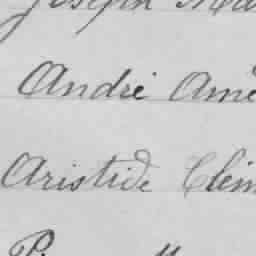 Joseph
André Amé
Aristide Clém